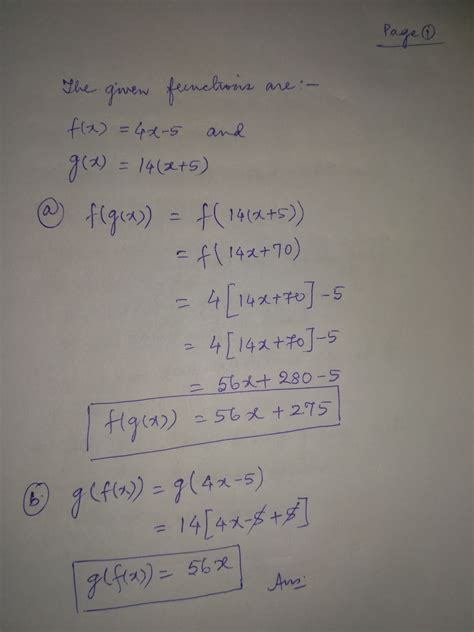 Page ①
The given functions are:-
f(x) = 4x-5 and
g(x) = 14(x+5)
ⓐ f(g(x)) = f(14(x+5))
= f(14x+70)
= 4[14x+70]-5
= 4[14x+70]-5
= 56x+280-5
f(g(x)) = 56x+275
ⓑ g(f(x)) = g(4x-5)
= 14[4x-5+5]
g(f(x)) = 56x
Ans: